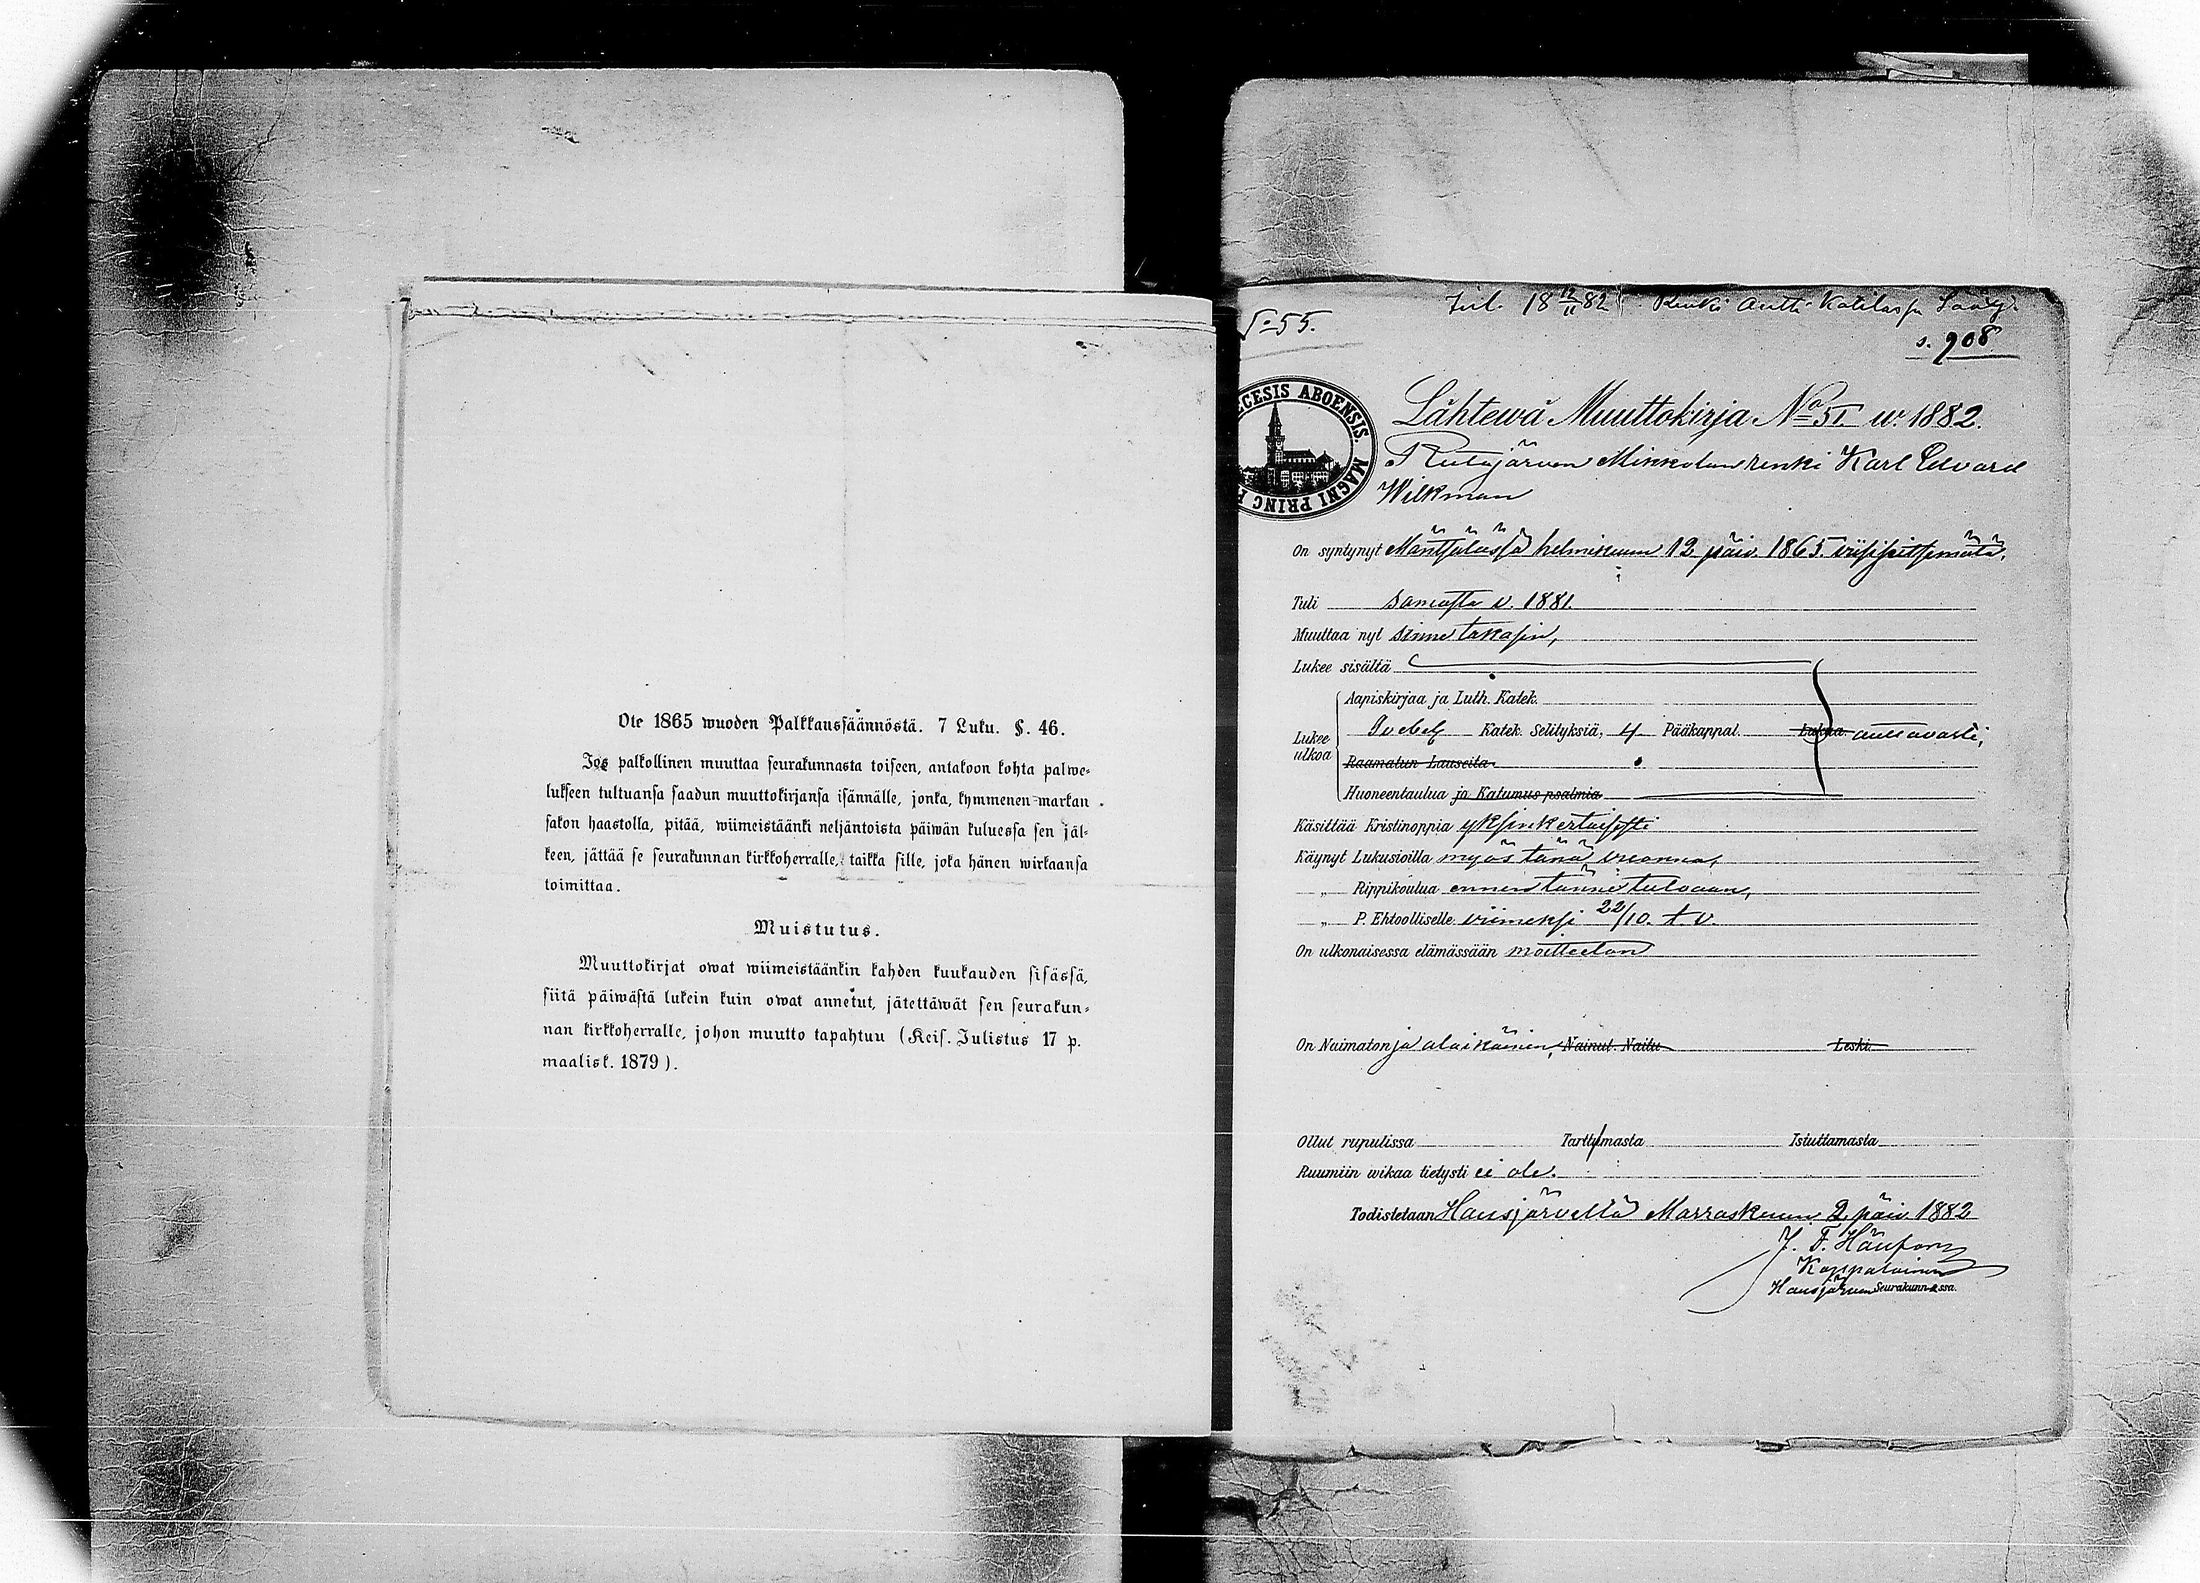 Ote 1865 wuoden Palkkaussäännöstä. 7 Luku. §. 46.
Jos palkollinen muuttaa seurakunnasta toiseen, antakoon kohta palwe-
lukseen tultuansa saadun muuttokirjansa isännälle, jonka, kymmenen markan
sakon haastolla, pitää, wiimeistäänki neljäntoista päiwän kuluessa sen jäl-
keen, jättää se seurakunnan kirkkoherralle, taikka sille, joka hänen wirkaansa
toimittaa.
Muistutus.
Muuttokirjat owat wiimeistäänkin kahden kuukauden sisässä,
siitä päiwästä lukein kuin owat annetut, jätettäwät sen seurakun-
nan kirkkoherralle, johon muutto tapahtuu (Keis. Julistus 17 p.
maalisk. 1879).
No 55.
18 12/11 82 Renki Antti
s. 908
CESIS ABOENSIS. MAGNI PRINC
Lähtewä Muuttokirja No 51. w. 1882.
Mikkolan renki Karl Edvard
Wilkman
On syntynyt Mäntsälässä helmikuun 12 päiv. 1865
Tuli samasta v. 1881.
Muuttaa nyt sinne takasin,
Lukee sisältä
Aapiskirjaa ja Luth. Katek.
Lukee ulkoa Katek. Selityksiä, 4 Pääkappal. Lukua auttavasti,
Raamatun Lauseita
Huoneentaulua ja Katumus psalmia
Käsittää Kristinoppia yksinkertaisesti
Käynyt Lukusioilla myös tänä vuonna,
„ Rippikoulua ennen tänne tuloaan,
„ P. Ehtoolliselle viimeksi 22/10. t. v.
On ulkonaisessa elämässään moitteeton
On Naimaton ja alaikäinen, Nainut Naitu Leski
Ollut rupulissa Tarttumasta Istuttamasta
Ruumiin wikaa tietysti ei ole.
Todistetaan Hausjärvellä Marraskuun 2 päiv. 1882
J. F.
Kappalainen
Hausjärven Seurakunnassa.